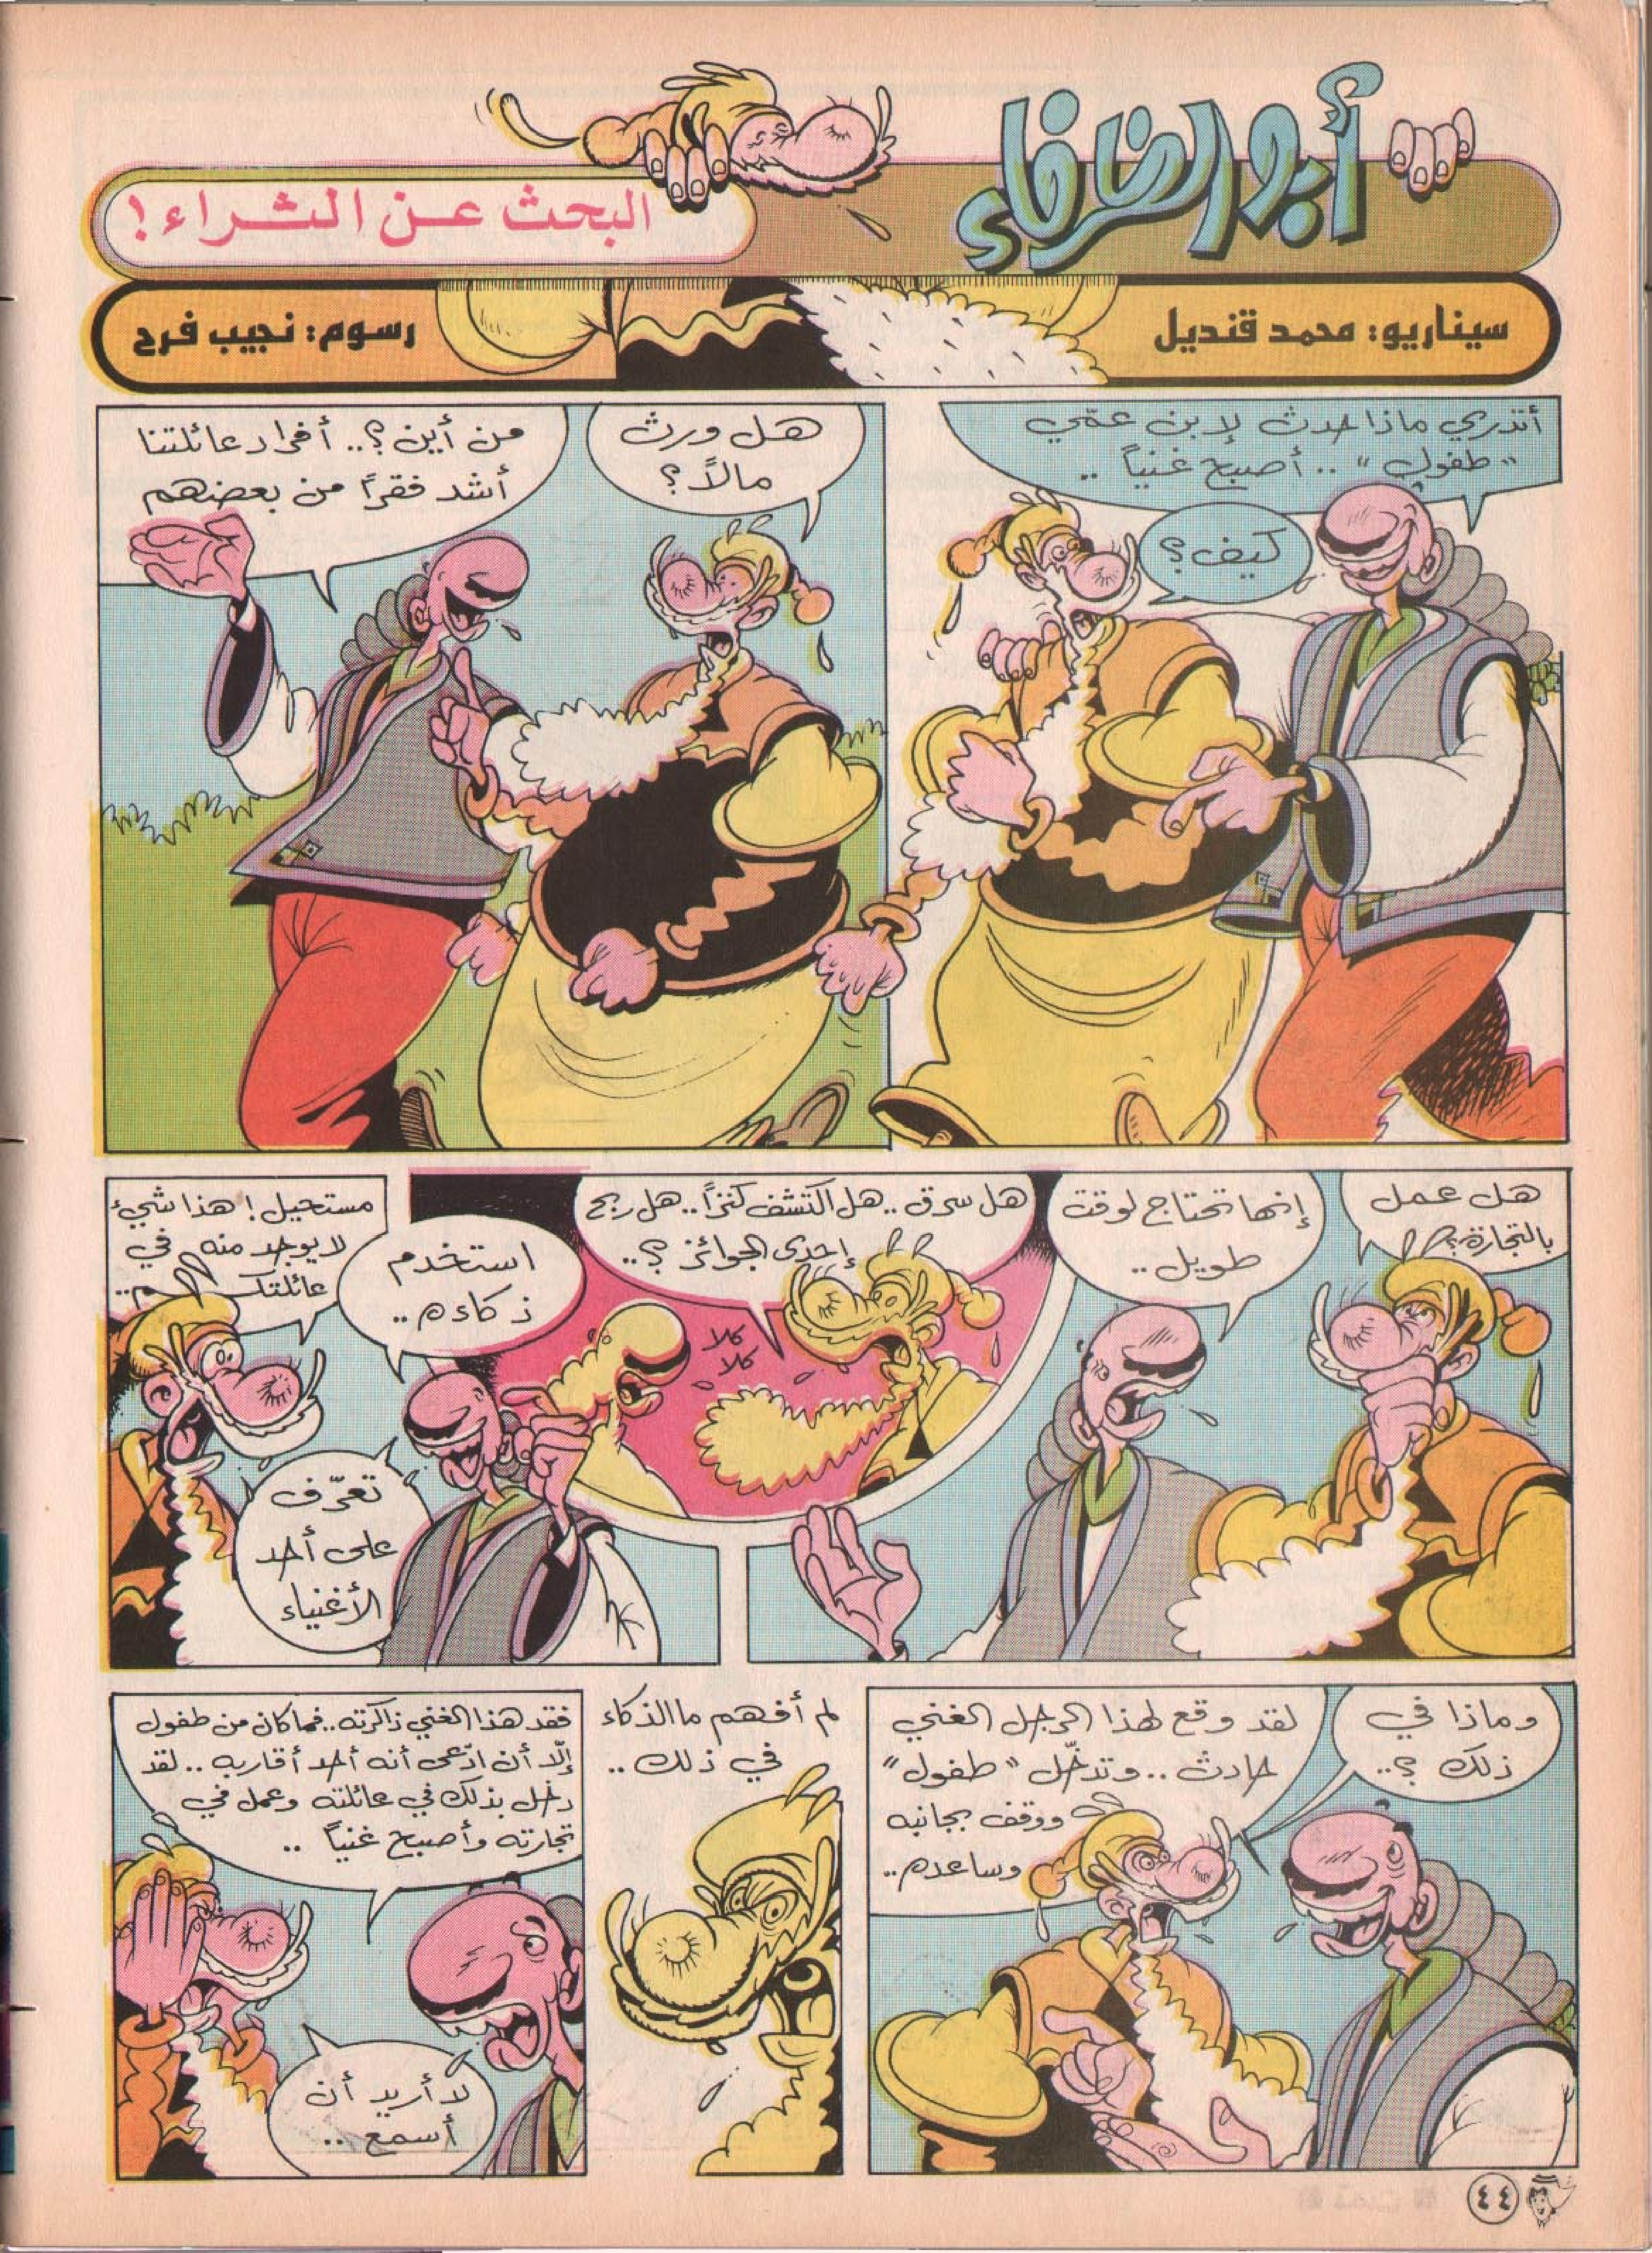 أبو الظرفاء
البحث عن الثراء!
سيناريو: محمد قنديل
رسوم: نجيب فرح
أتدري ماذا حدث لإبن عمّي
"طفول" .. أصبح غنياً ..
كيف؟
هل ورث
مالاً؟
من أين؟.. أفراد عائلتنا
أشد فقراً من بعضهم
هل عمل
بالتجارة؟
إنها تحتاج لوقت
طويل..
هل سرق.. هل اكتشف كنزاً.. هل ربح
إحدى الجوائز؟..
كلا
كلا
استخدم
ذكاءه..
مستحيل! هذا شيء
لا يوجد منه في
عائلتكم..
تعرّف
على أحد
الأغنياء
وماذا في
ذلك؟..
لقد وقع لهذا الرجل الغني
حادث.. وتدخّل "طفول"
ووقف بجانبه
وساعده..
لم أفهم ما الذكاء
في ذلك..
فقد هذا الغني ذاكرته.. فما كان من طفول
إلّا أن ادّعى أنه أحد أقاربه.. لقد
دخل بذلك في عائلته وعمل في
تجارته وأصبح غنياً ..
لا أريد أن
أسمع ..
٤٤